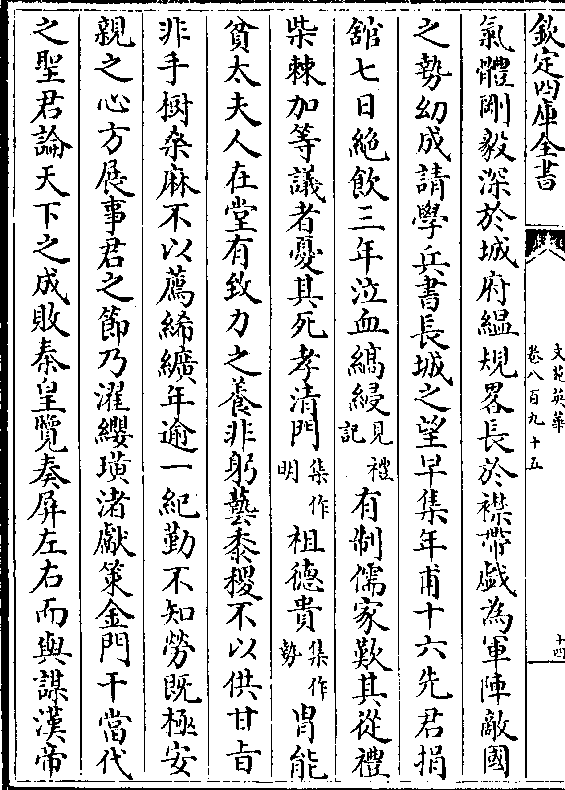 欽定四庫全書
文苑英華
卷八百九十五
十四
氣體剛毅深於城府緼規畧長於襟帶戯為軍陣敵國
之勢幼成請學兵書長城之望早集年甫十六先君捐
舘七日絶飲三年泣血縞縵見禮記有制儒家歎其從禮
柴棘加等議者憂其死孝清門集作明祖德貴集作勢胄能
貧太夫人在堂有致力之養非躬藝黍稷不以供甘旨
非手樹桑麻不以薦絺纊年逾一紀勤不知勞既極安
親之心方展事君之節乃濯纓璜渚獻策金門干當代
之聖君論天下之成敗秦皇覽奏屏左右而與謀漢帝